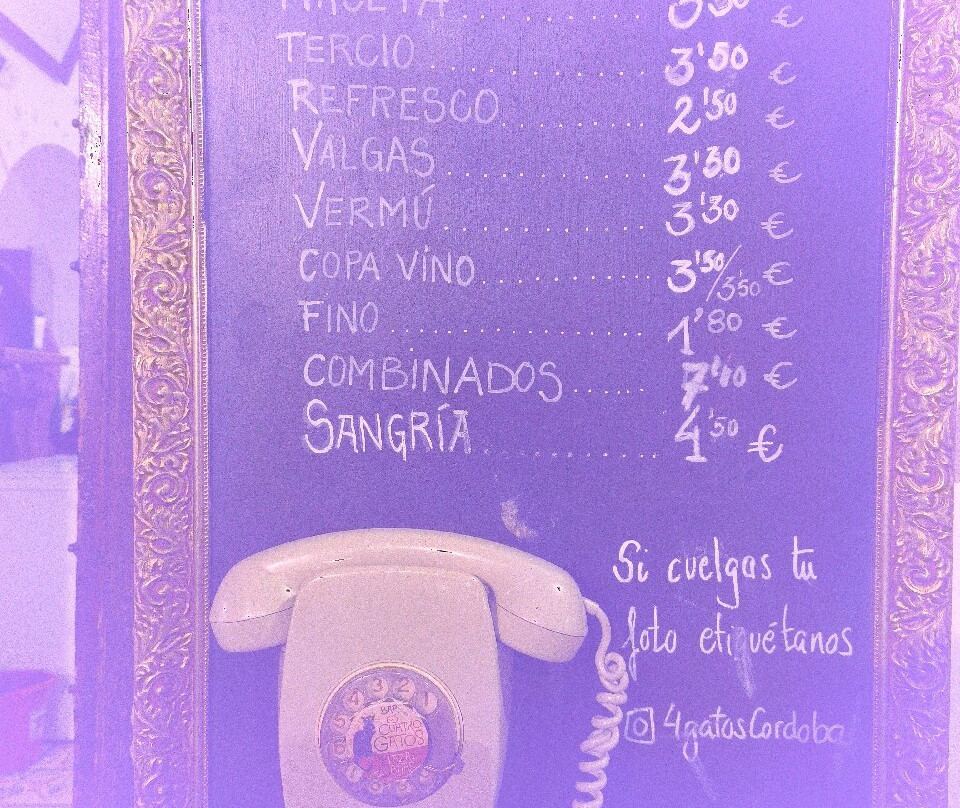 TERCIO .......... 3'50 €
REFRESCO .......... 2'50 €
VALGAS .......... 3'30 €
VERMÚ .......... 3'30 €
COPA VINO .......... 3'50/3'50 €
FINO .......... 1'80 €
COMBINADOS ...... 7'40 €
SANGRÍA .......... 4'50 €
Si cuelgas tu
foto etiquétanos
4gatosCordoba
4 3 2 1
5
BAR
CUATRO
GATOS